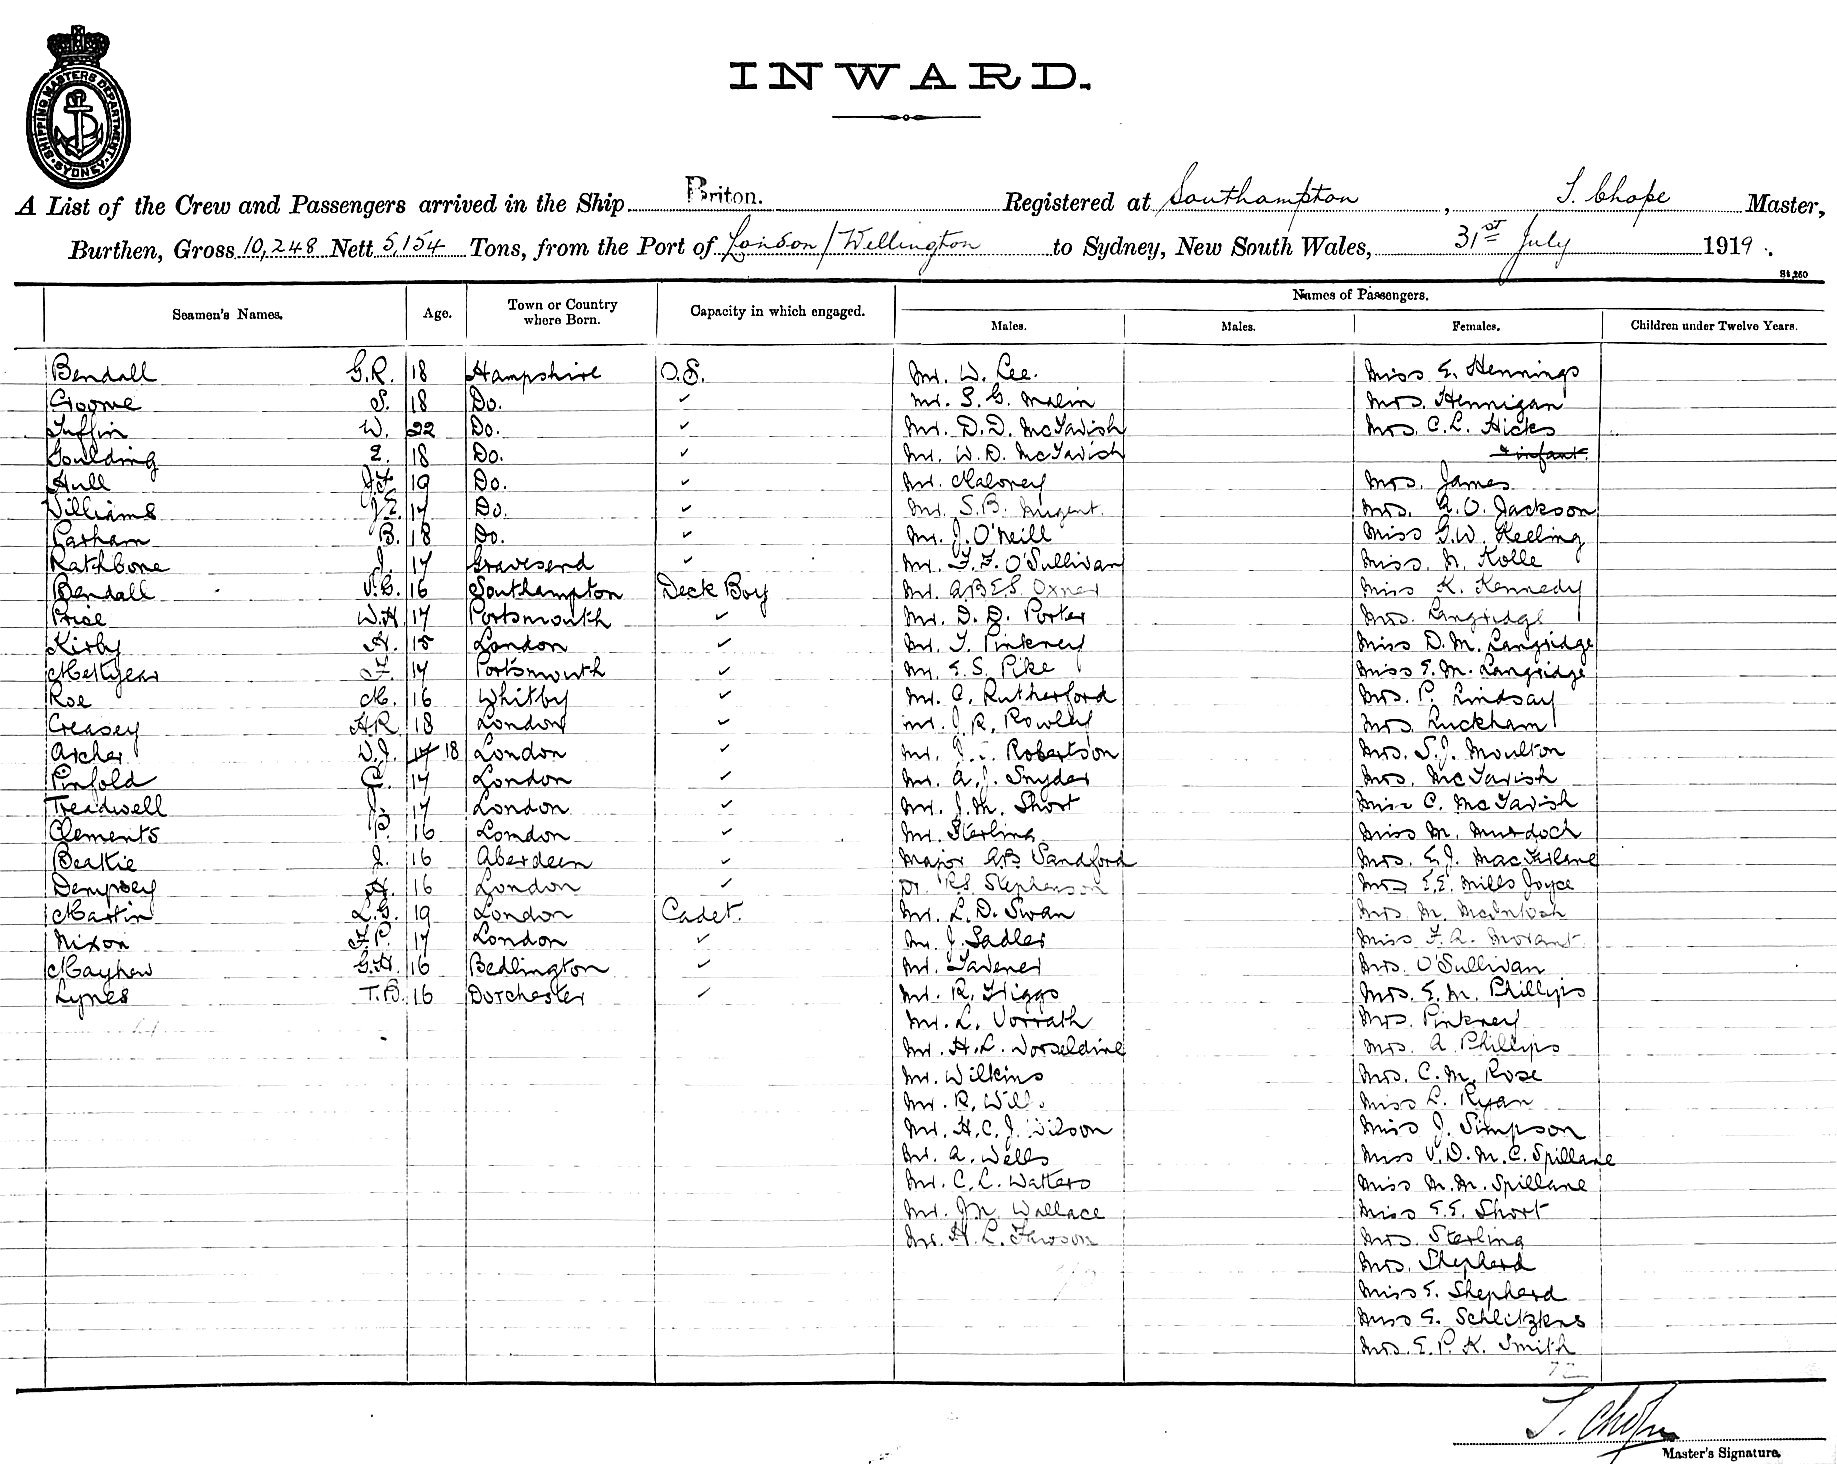 INWARD.
SHIPPING MASTERS DEPARTMENT · SYDNEY ·
A List of the Crew and Passengers arrived in the Ship Briton. Registered at Southampton, T. Chope Master,
Burthen, Gross 10,248 Nett 5,154 Tons, from the Port of London/Wellington to Sydney, New South Wales, 31st July 1919.
St.260
Seamen's Names. Age. Town or Country where Born. Capacity in which engaged. Names of Passengers.
Males. Males. Females. Children under Twelve Years.
Bendall G.R. 18 Hampshire O.S. Mr. W. Lee. Miss E. Hennings
Groome S. 18 Do. ✓ Mr. S. G. Malin Mrs. Hennigan
Tuffin W. 22 Do. ✓ Mr. D. D. McTavish Mrs. C. L. Hicks
Goulding E. 18 Do. ✓ Mr. W. D. McTavish & infant.
Hull J.F. 19 Do. ✓ Mr. Maloney Mrs. James
Williams J.E. 17 Do. ✓ Mr. S. B. Nugent. Mrs. A. O. Jackson
Parham B. 18 Do. ✓ Mr. J. O'Neill Miss G. W. Keeling
Rathbone J. 17 Gravesend ✓ Mr. F. F. O'Sullivan Miss. N. Kolle
Bendall V.G. 16 Southampton Deck Boy Mr. A B E S. Oxner Miss K. Kennedy
Price W.H. 17 Portsmouth ✓ Mr. D. D. Porter Mrs. Langridge
Kirby H. 15 London ✓ Mr. T. Pinkney Miss D. M. Langridge
Mellyear F. 17 Portsmouth ✓ Mr. E. S. Pike Miss E. M. Langridge
Roe M. 16 Whitby ✓ Mr. C. Rutherford Mrs. P. Lindsay
Creasey H.R. 18 London ✓ Mr. J. R. Rowley Mrs Luckham
Archer W.J. 17 18 London ✓ Mr. J. Robertson Mrs. S. J. Moulton
Pinfold C. 17 London ✓ Mr. A. J. Snyder Mrs. McTavish
Treadwell 17 London ✓ Mr. J. M. Short Miss C. McTavish
Clements P. 16 London ✓ Mr. Sterling Miss M. Murdoch
Beattie J. 16 Aberdeen ✓ Major A B Sandford Mrs. E. J. MacFarlane
Dempsey H. 16 London ✓ Dr. R S. Stephenson Mrs E. E. Mills Joyce
Martin L.G. 19 London Cadet. Mr. L. D. Swan Mrs M. McIntosh
Nixon F.P. 17 London ✓ Mr. J. Sadler Miss F. A. Morant.
Mayhew G.H. 16 Bedlington ✓ Mr. Tavener Mrs. O'Sullivan
Lynes T.B. 16 Dorchester ✓ Mr. R. Higgs Mrs. E. M. Phillips
Mr. L. Vorrath Mrs. Pinkney
Mr. H. L. Vorseldine Mrs. A Phillips
Mr. Wilkins Mrs. C. M. Rose
Mr. R. Wills Miss L. Ryan
Mr. H. C. J. Wilson Miss J. Simpson
Mr. A. Wells Miss V. D. M. C. Spillane
Mr. C. L. Watters Miss M. M. Spillane
Mr. J M. Wallace Miss E. E. Short
Mr. H. L. Mrs. Sterling
Mrs. Shepherd
Miss E. Shepherd
Miss G. Schlitzkus
Mrs. E. P. K. Smith
72
T. Chope
Master's Signature.